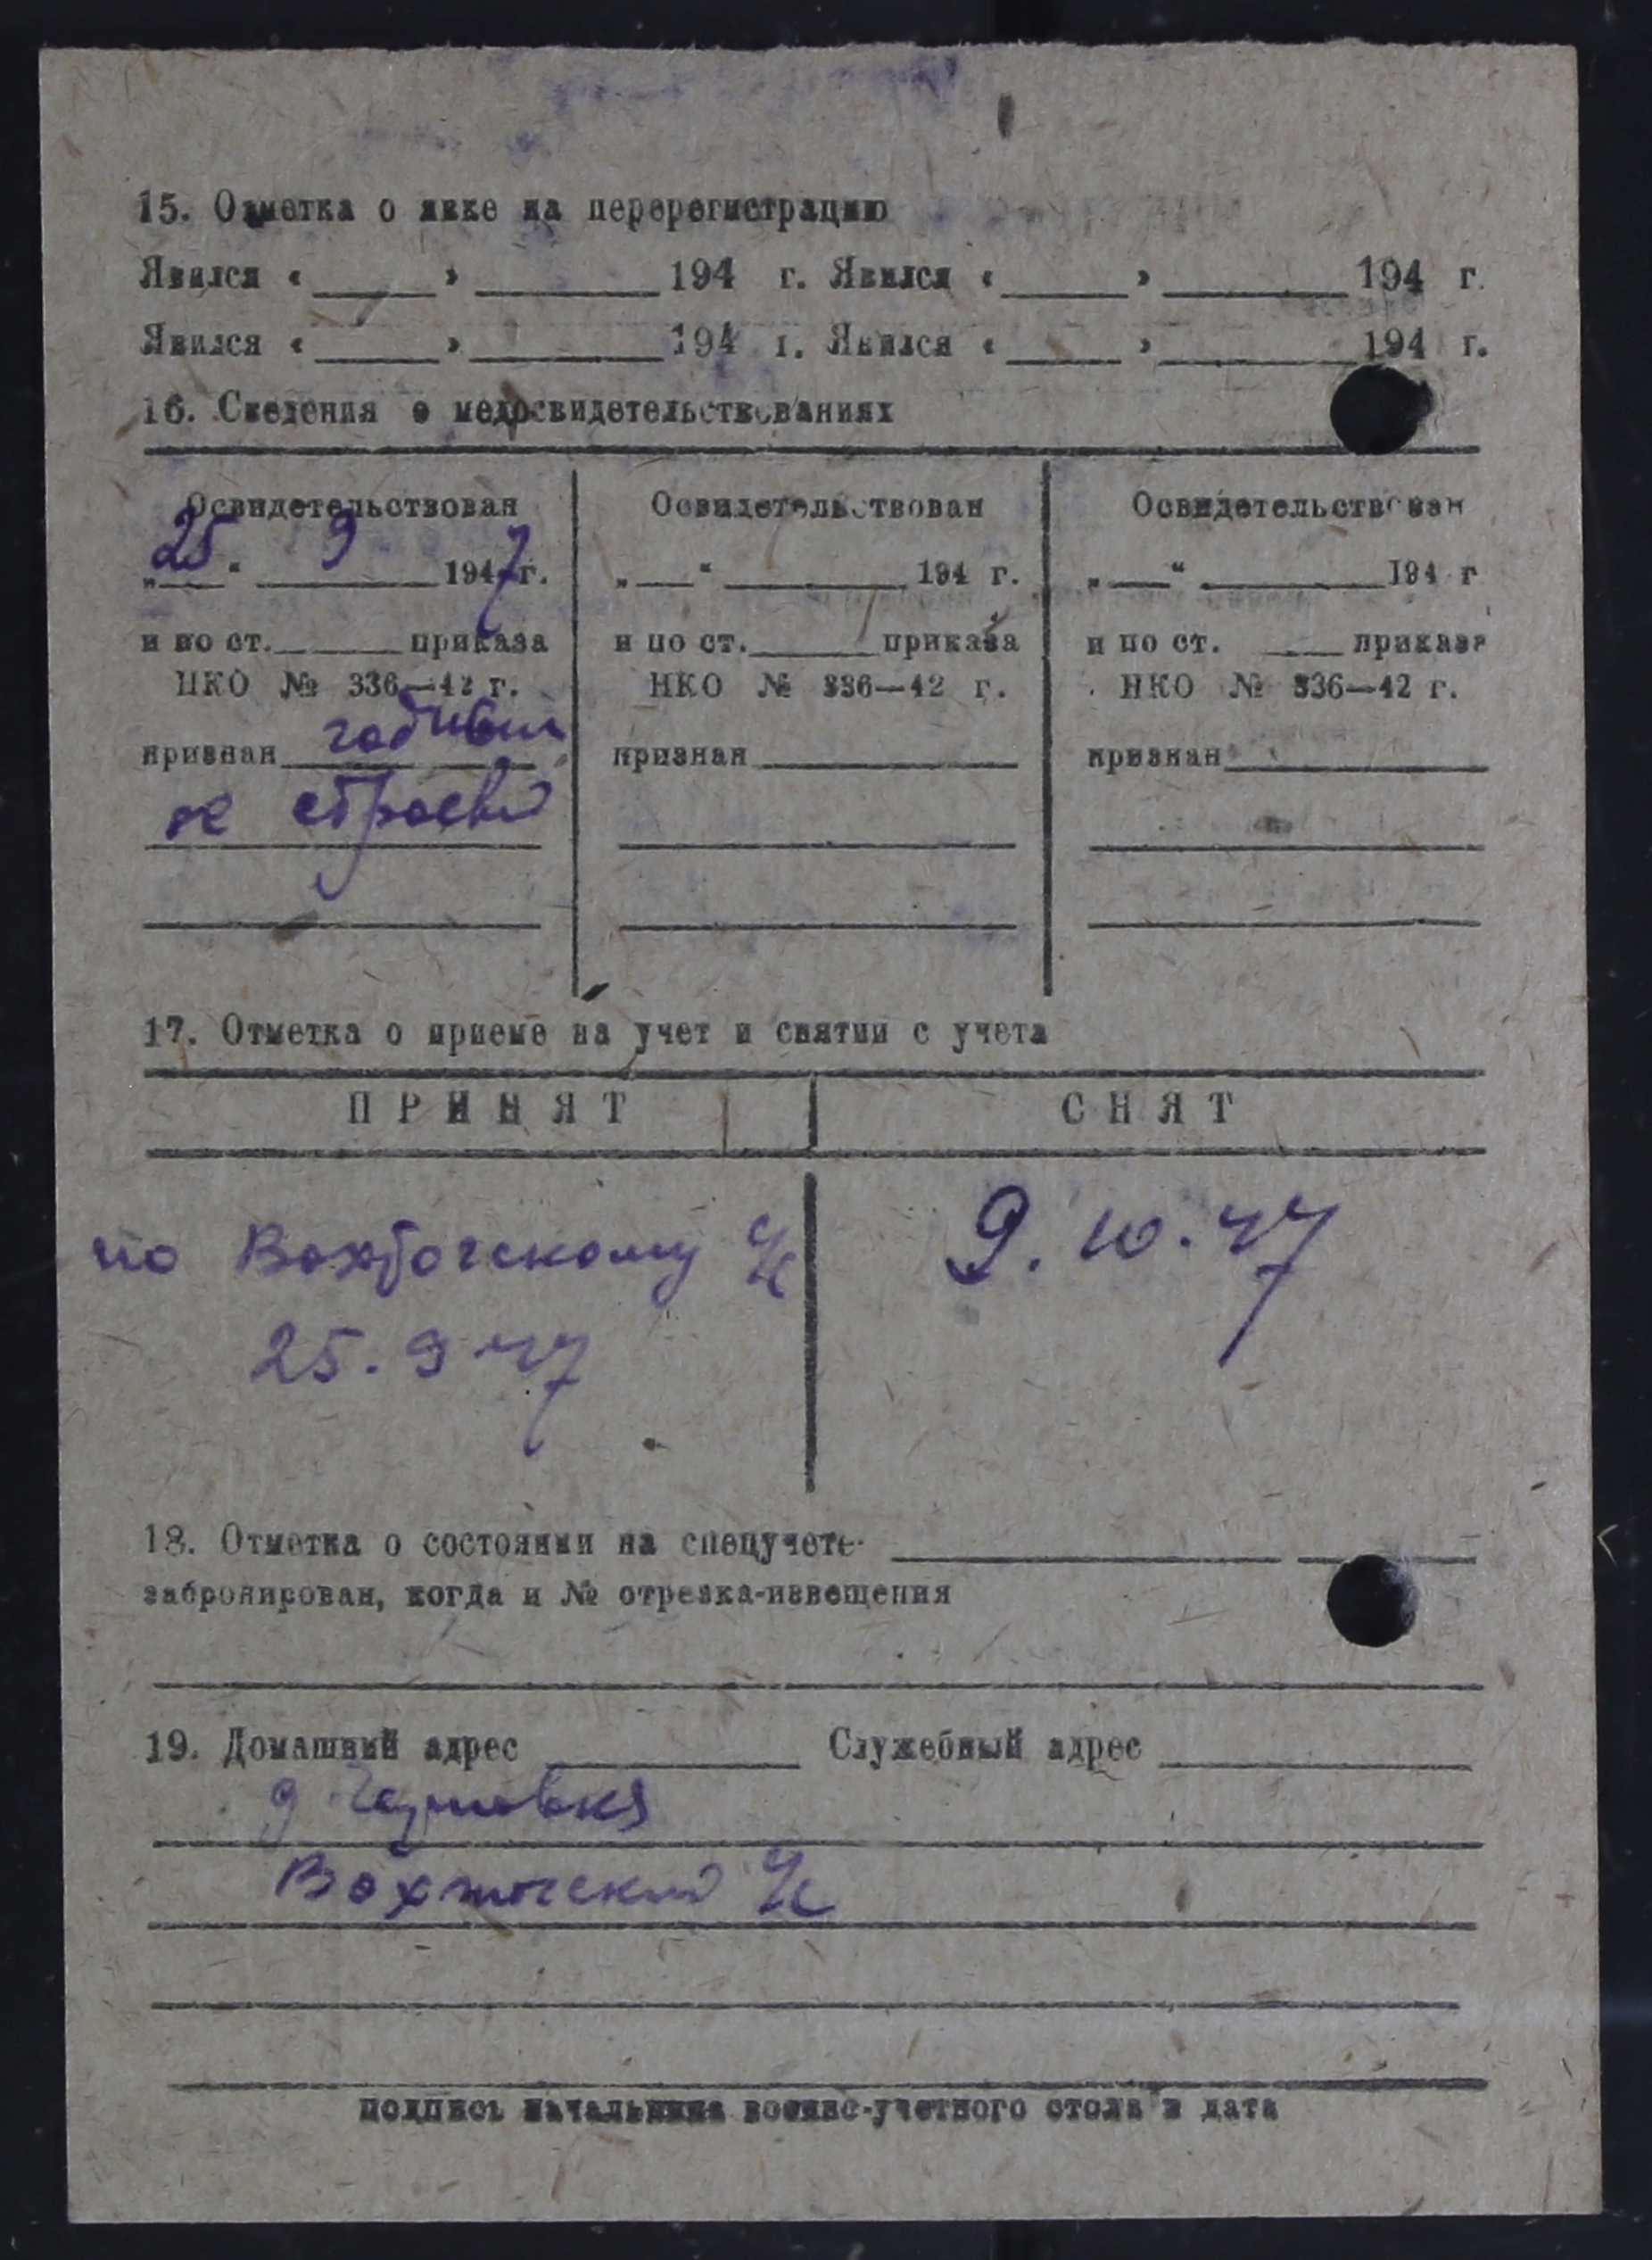 15. Отметка о явке на перерегистрацию
Явился « ____ » ______ 194 г. Явился « ____ » ______ 194 г.
Явился « ____ » ______ 194 г. Явился « ____ » ______ 194 г.
16. Сведения о медосвидетельствованиях
Освидетельствован
„25“ 9 1947 г.
и по ст. ______ приказа
НКО № 336—42 г.
признан годным
к строевой
Освидетельствован
„___“ ______ 194 г.
и по ст. ______ приказа
НКО № 336—42 г.
признан ______
Освидетельствован
„___“ ______ 194 г
и по ст. ____ приказа
НКО № 336—42 г.
признан ______
17. Отметка о приеме на учет и снятии с учета
ПРИНЯТ
СНЯТ
по Вохтогскому
25.9.47
9.10.47
18. Отметка о состоянии на спецучете ______
забронирован, когда и № отрезка-извещения
19. Домашний адрес ______ Служебный адрес ______
д
Вохтогский
подпись начальника военно-учетного стола и дата